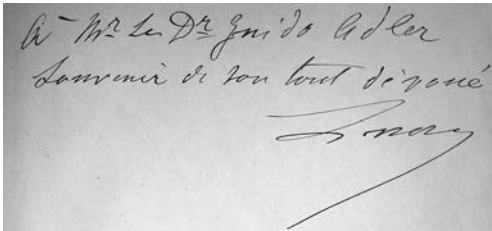 À Mr Le Dr Guido Adler
Souvenir de son tout dévoué